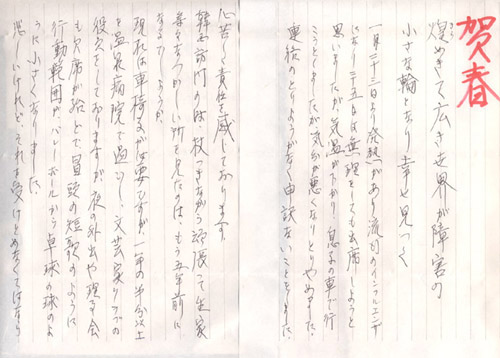 賀春
煌めきて広き世界が障害の
小さな輪となり幸せ見つく
一月二十三日より発熱があり流行のインフルエンザ
になり二十五日は無理をしても出席しようと
思いましたが気温が下がり、息子の車で行
こうとしましたが気分が悪くなりとりやめました。
連絡のとりようがなく申訳ないことをしました。
心苦しく責任を感じております。
杖つきながら頑張って生家
等々なつかしい所を見たのは、もう五年前に
なるでしょうか。
現在は車椅子が必要ですが一年の半分以上
を温泉病院で過ごし、文芸クラブの
役をしておりますが夜の外出や理事会
も欠席が殆どで冒頭の短歌のように
行動範囲がバレーボールから卓球の球のよ
うに小さくなりました。
悲しいけれどそれを受けとめなくてはなら